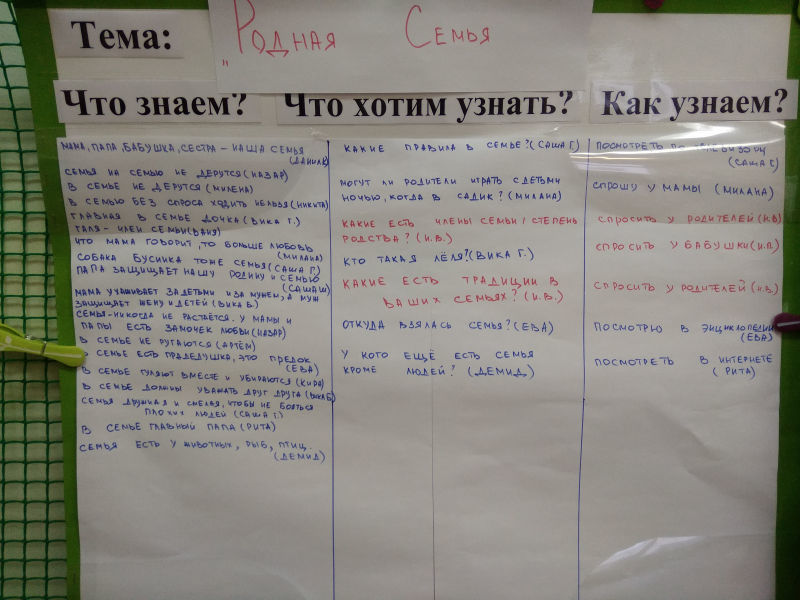 Тема:
„Родная Семья
Что знаем?
Что хотим узнать?
Как узнаем?
МАМА, ПАПА, БАБУШКА, СЕСТРА – НАША СЕМЬЯ
(ДАНИЛА)
СЕМЬЯ НА СЕМЬЮ НЕ ДЕРУТСЯ (НАЗАР)
В СЕМЬЕ НЕ ДЕРУТСЯ (МИЛЕНА)
В СЕМЬЮ БЕЗ СПРОСА ХОДИТЬ НЕЛЬЗЯ (НИКИТА)
ГЛАВНАЯ В СЕМЬЕ ДОЧКА (ВИКА Г.)
ГАЛЯ – ЧЛЕН СЕМЬИ (ВАНЯ)
ЧТО МАМА ГОВОРИТ, ТО БОЛЬШЕ ЛЮБОВЬ
(МИЛАНА)
СОБАКА БУСИНКА ТОЖЕ СЕМЬЯ (САША Г.)
ПАПА ЗАЩИЩАЕТ НАШУ РОДИНУ И СЕМЬЮ
(САША Ш)
МАМА УХАЖИВАЕТ ЗА ДЕТЬМИ И ЗА МУЖЕМ, А МУЖ
ЗАЩИЩАЕТ ЖЕНУ И ДЕТЕЙ (ВИКА Б.)
СЕМЬЯ – НИКОГДА НЕ РАСТАЁТСЯ. У МАМЫ И
ПАПЫ ЕСТЬ ЗАМОЧЕК ЛЮБВИ (НАЗАР)
В СЕМЬЕ НЕ РУГАЮТСЯ (АРТЁМ)
В СЕМЬЕ ЕСТЬ ПРАДЕДУШКА, ЭТО ПРЕДОК
(ЕВА)
В СЕМЬЕ ГУЛЯЮТ ВМЕСТЕ И УБИРАЮТСЯ (КИРА)
В СЕМЬЕ ДОЛЖНЫ УВАЖАТЬ ДРУГ ДРУГА (ВИКА Б)
СЕМЬЯ ДРУЖНАЯ И СМЕЛАЯ, ЧТОБЫ НЕ БОЯТЬСЯ
ПЛОХИХ ЛЮДЕЙ (САША Г.)
В СЕМЬЕ ГЛАВНЫЙ ПАПА (РИТА)
СЕМЬЯ ЕСТЬ У ЖИВОТНЫХ, РЫБ, ПТИЦ.
(ДЕМИД)
КАКИЕ ПРАВИЛА В СЕМЬЕ? (САША Г)
МОГУТ ЛИ РОДИТЕЛИ ИГРАТЬ С ДЕТЬМИ
НОЧЬЮ, КОГДА В САДИК? (МИЛАНА)
КАКИЕ ЕСТЬ ЧЛЕНЫ СЕМЬИ / СТЕПЕНЬ
РОДСТВА? (И.В.)
КТО ТАКАЯ ЛЁЛЯ? (ВИКА Г.)
КАКИЕ ЕСТЬ ТРАДИЦИИ В
ВАШИХ СЕМЬЯХ? (И.В.)
ОТКУДА ВЗЯЛАСЬ СЕМЬЯ? (ЕВА)
У КОГО ЕЩЁ ЕСТЬ СЕМЬЯ
КРОМЕ ЛЮДЕЙ? (ДЕМИД)
ПОСМОТРЕТЬ ПО ТЕЛЕВИЗОРУ
(САША Г)
СПРОШУ У МАМЫ (МИЛАНА)
СПРОСИТЬ У РОДИТЕЛЕЙ (И.В)
СПРОСИТЬ У БАБУШКИ (И.В.)
СПРОСИТЬ У РОДИТЕЛЕЙ (И.В.)
ПОСМОТРЮ В ЭНЦИКЛОПЕДИИ
(ЕВА)
ПОСМОТРЕТЬ В ИНТЕРНЕТЕ
(РИТА)